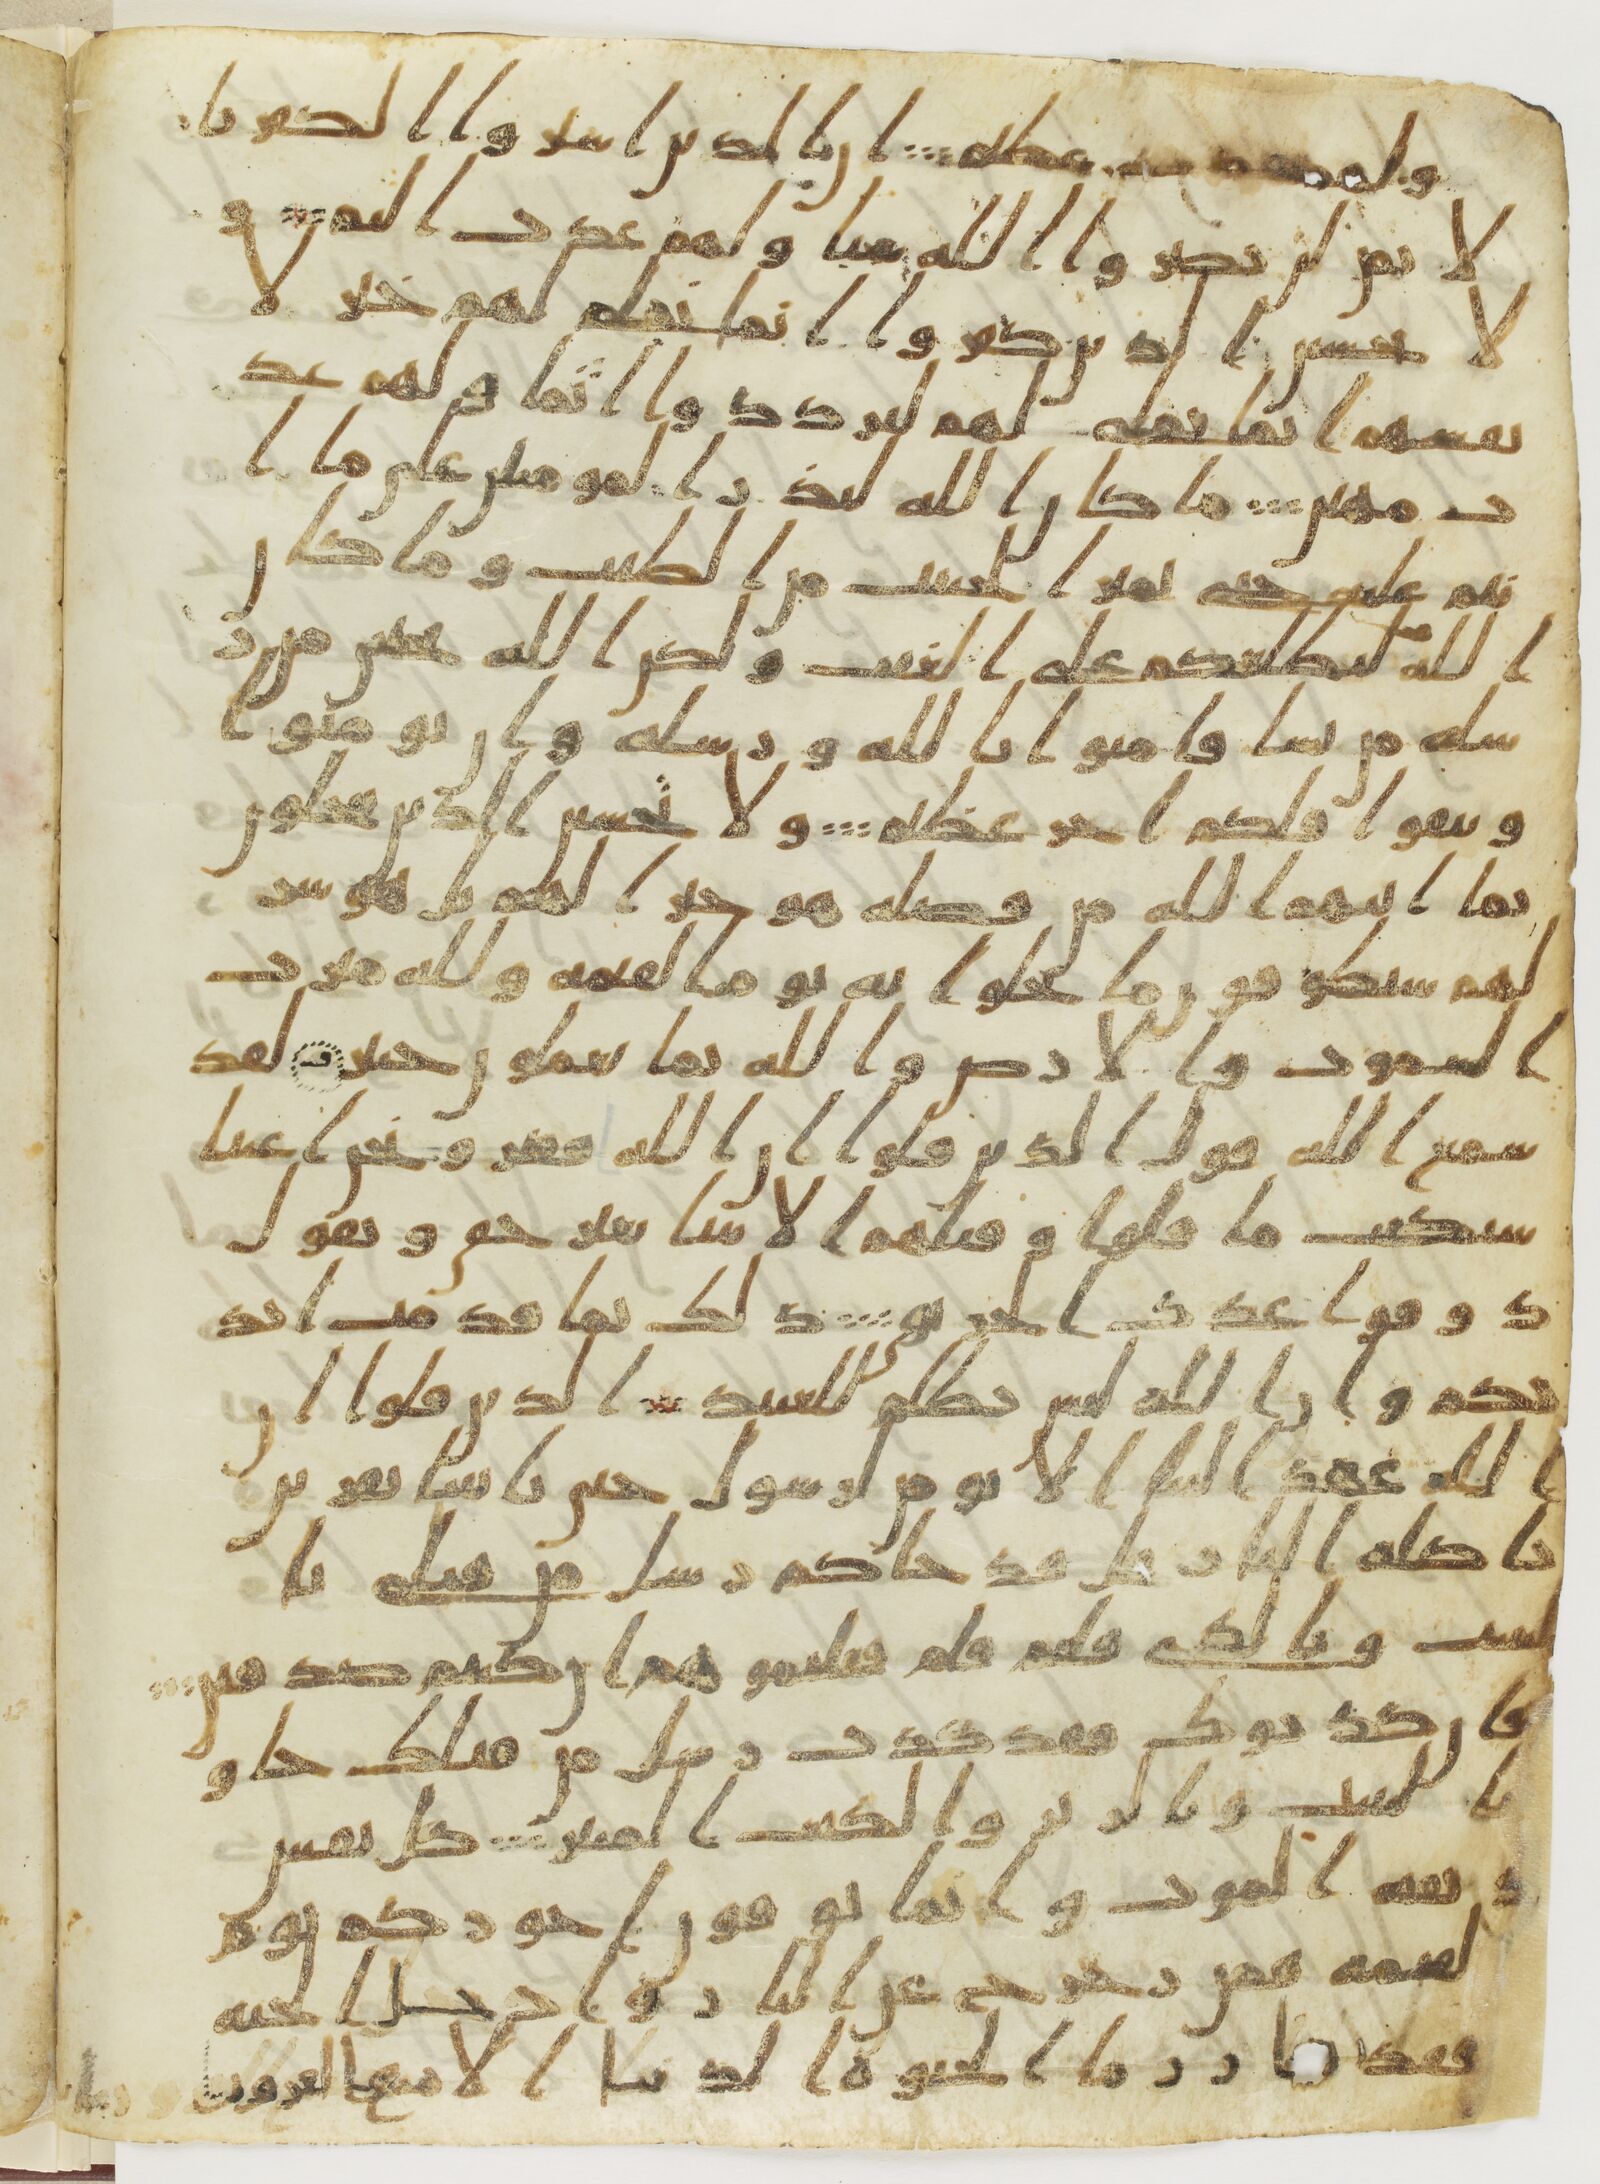 ولهم عذب عظيم ان الذين اشتروا الكفر با
لايمن لن يضروا الله شيا ولهم عذب اليم و
لا يحسبن الذين كفروا انما نملي لهم خير لا
نفسهم انما نملي لهم ليزددوا اثما ولهم عذ
ب مهين ما كان الله ليذر المومنين على ما ا
نتم عليه حتى يميز الخبيث من الطيب وما كان
الله ليطلعكم على الغيب ولكن الله يجتبي من ر
سله من يشا فامنوا بالله ورسله وان تومنوا
وتتقوا فلكم اجر عظيم ولا تحسبن الذين يبخلون
بما اتيهم الله من فضله هو خيرا لهم بل هو شر
لهم سيطوقون ما بخلوا به يوم القيمة ولله ميرث
السموت والارض والله بما تعملون خبير لقد
سمع الله قول الذين قلوا ان الله فقير ونحن اغنيا
سنكتب ما قلوا وقتلهم الانبيا بغير حق ونقول
ذوقوا عذب الحريق ذلك بما قدمت ايد
يكم وان الله ليس بظلم للعبيد الذين قلوا ان
الله عهد الينا الا نومن لرسول حتى ياتينا بقربن
تاكله النار قل قد جاكم رسل من قبلي با
لبينت وبالذي قلتم فلم قتلتموهم ان كنتم صدقين
فان كذبوك فقد كذب رسل من قبلك جاو
بالبينت وبالزبر والكتب المنير كل نفس
ذيقة الموت وانما توفون اجوركم يوم
القيمة فمن زحزح عن النار وادخل الجنة
فقد فاز وما الحيوة الدنيا الا متع الغرور